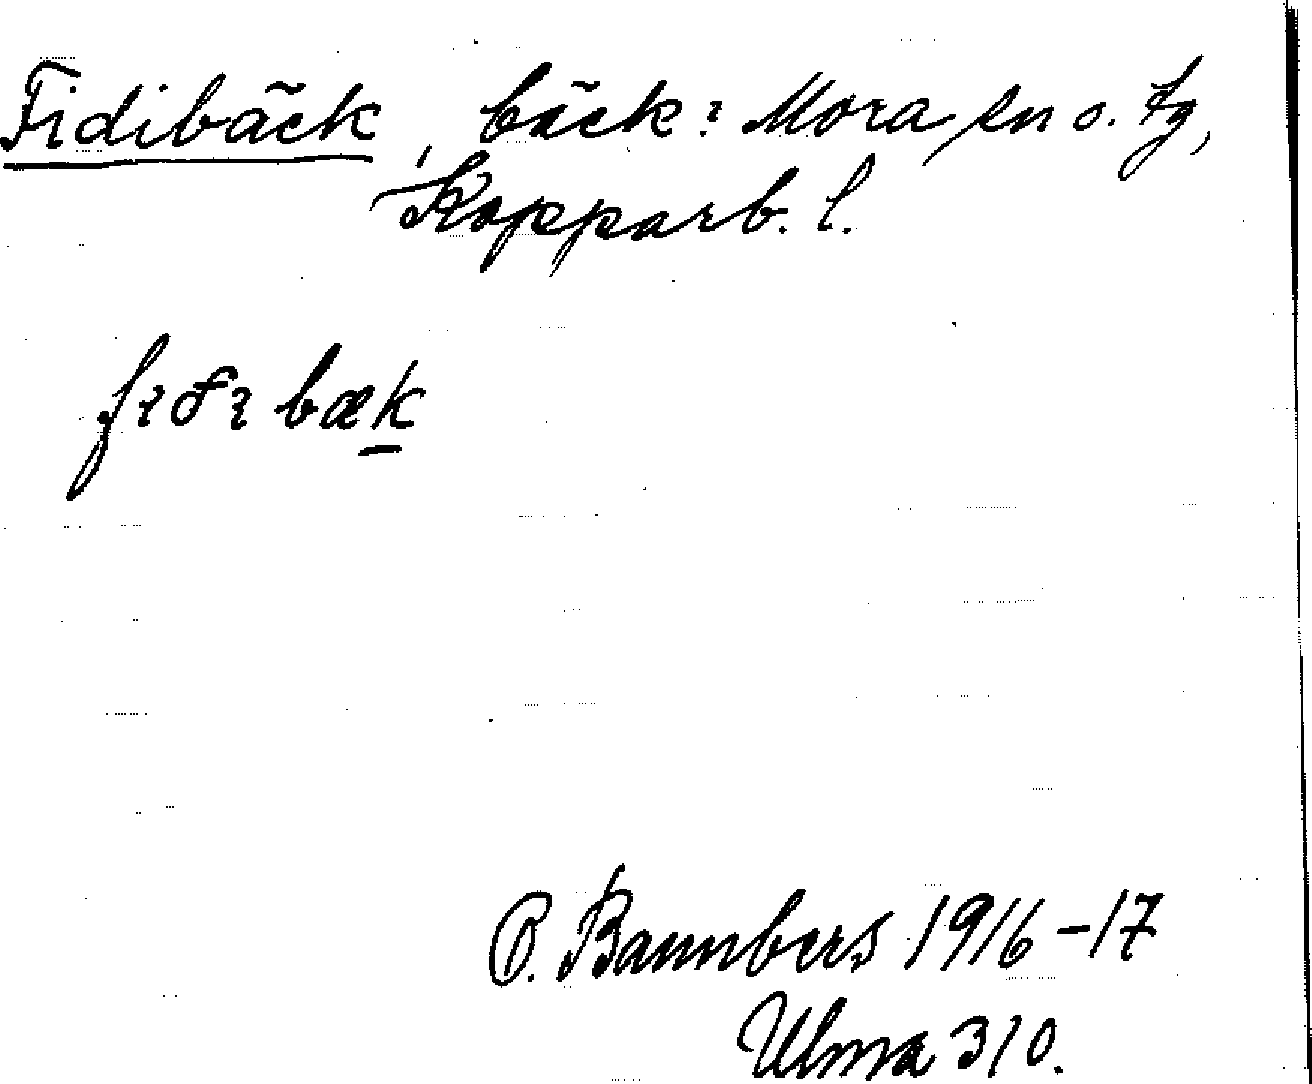 Fidibäck, bäck: Mora sn o. tg,
Kopparb. l.
fıđı bæk
O. Bannbers 1916-17
Ulma 310.